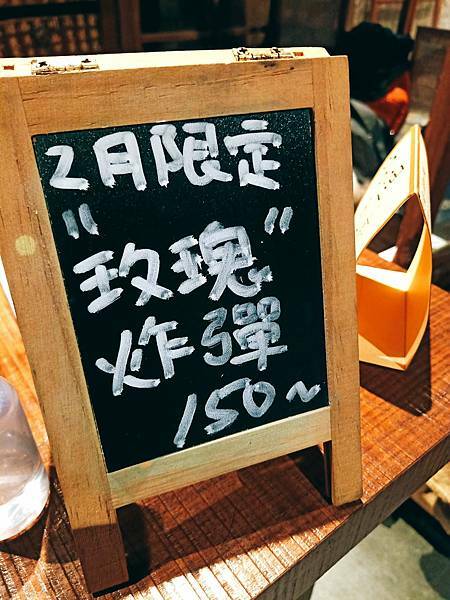 2月限定
"玫瑰"
炸彈
150~